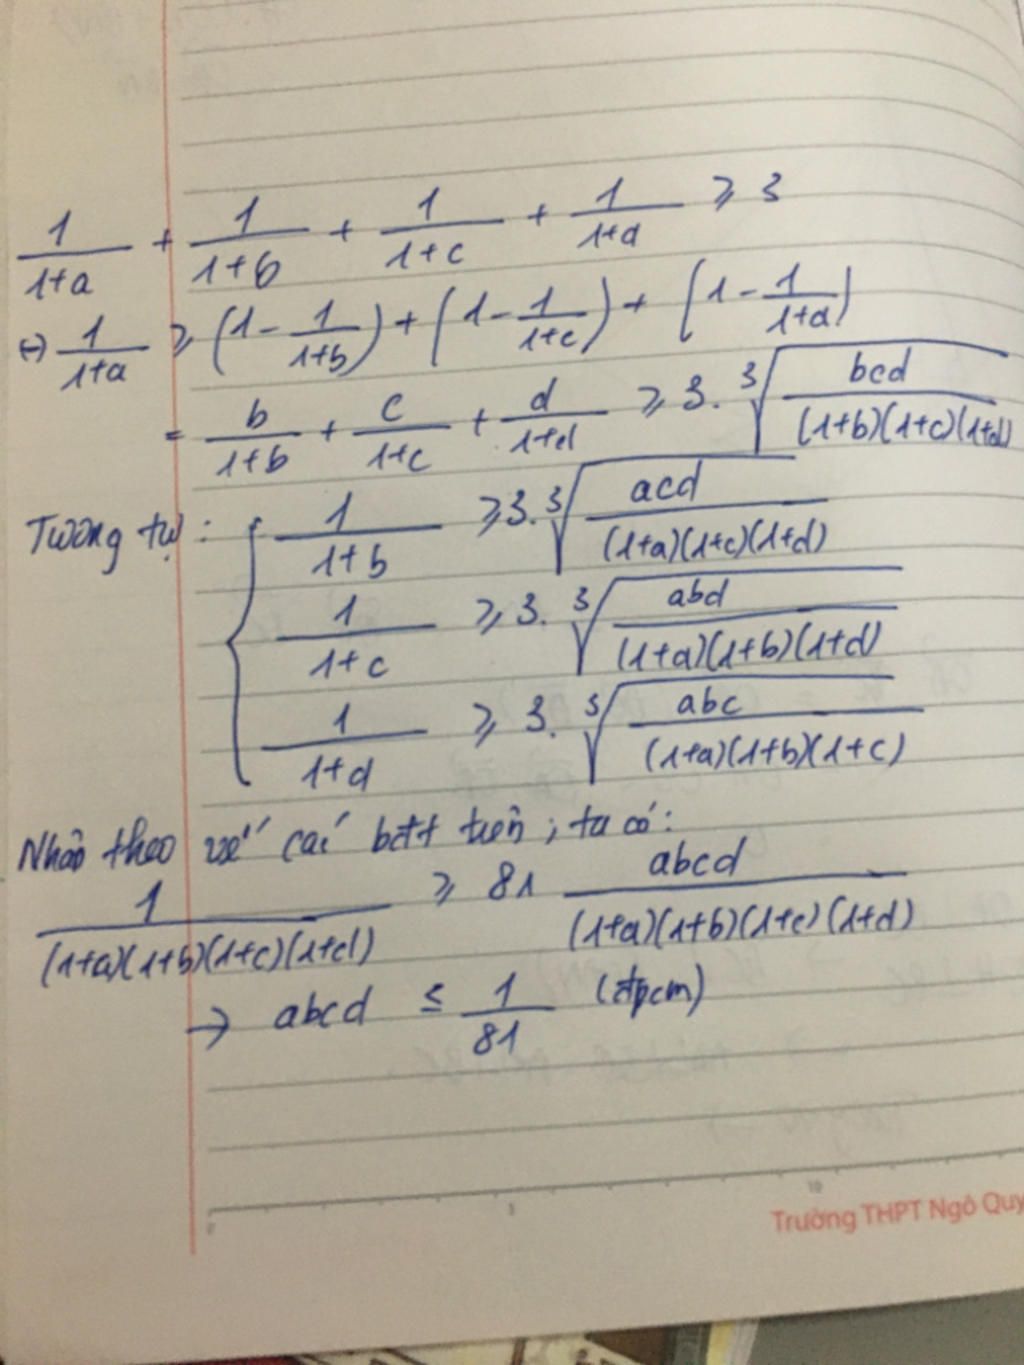 1/(1+a) + 1/(1+b) + 1/(1+c) + 1/(1+d) ≥ 3
(-) 1/(1+a) ≥ (1 - 1/(1+b)) + (1 - 1/(1+c)) + (1 - 1/(1+d))
= b/(1+b) + c/(1+c) + d/(1+d) ≥ 3. ∛(bcd/((1+b)(1+c)(1+d)))
Tương tự: { 1/(1+b) ≥ 3. ∛(acd/((1+a)(1+c)(1+d)))
1/(1+c) ≥ 3. ∛(abd/((1+a)(1+b)(1+d)))
1/(1+d) ≥ 3. ∛(abc/((1+a)(1+b)(1+c)))
Nhân theo vế các bđt trên, ta có:
1/((1+a)(1+b)(1+c)(1+d)) ≥ 81 abcd/((1+a)(1+b)(1+c)(1+d))
→ abcd ≤ 1/81 (đpcm)
0 5 10
Trường THPT Ngô Quy